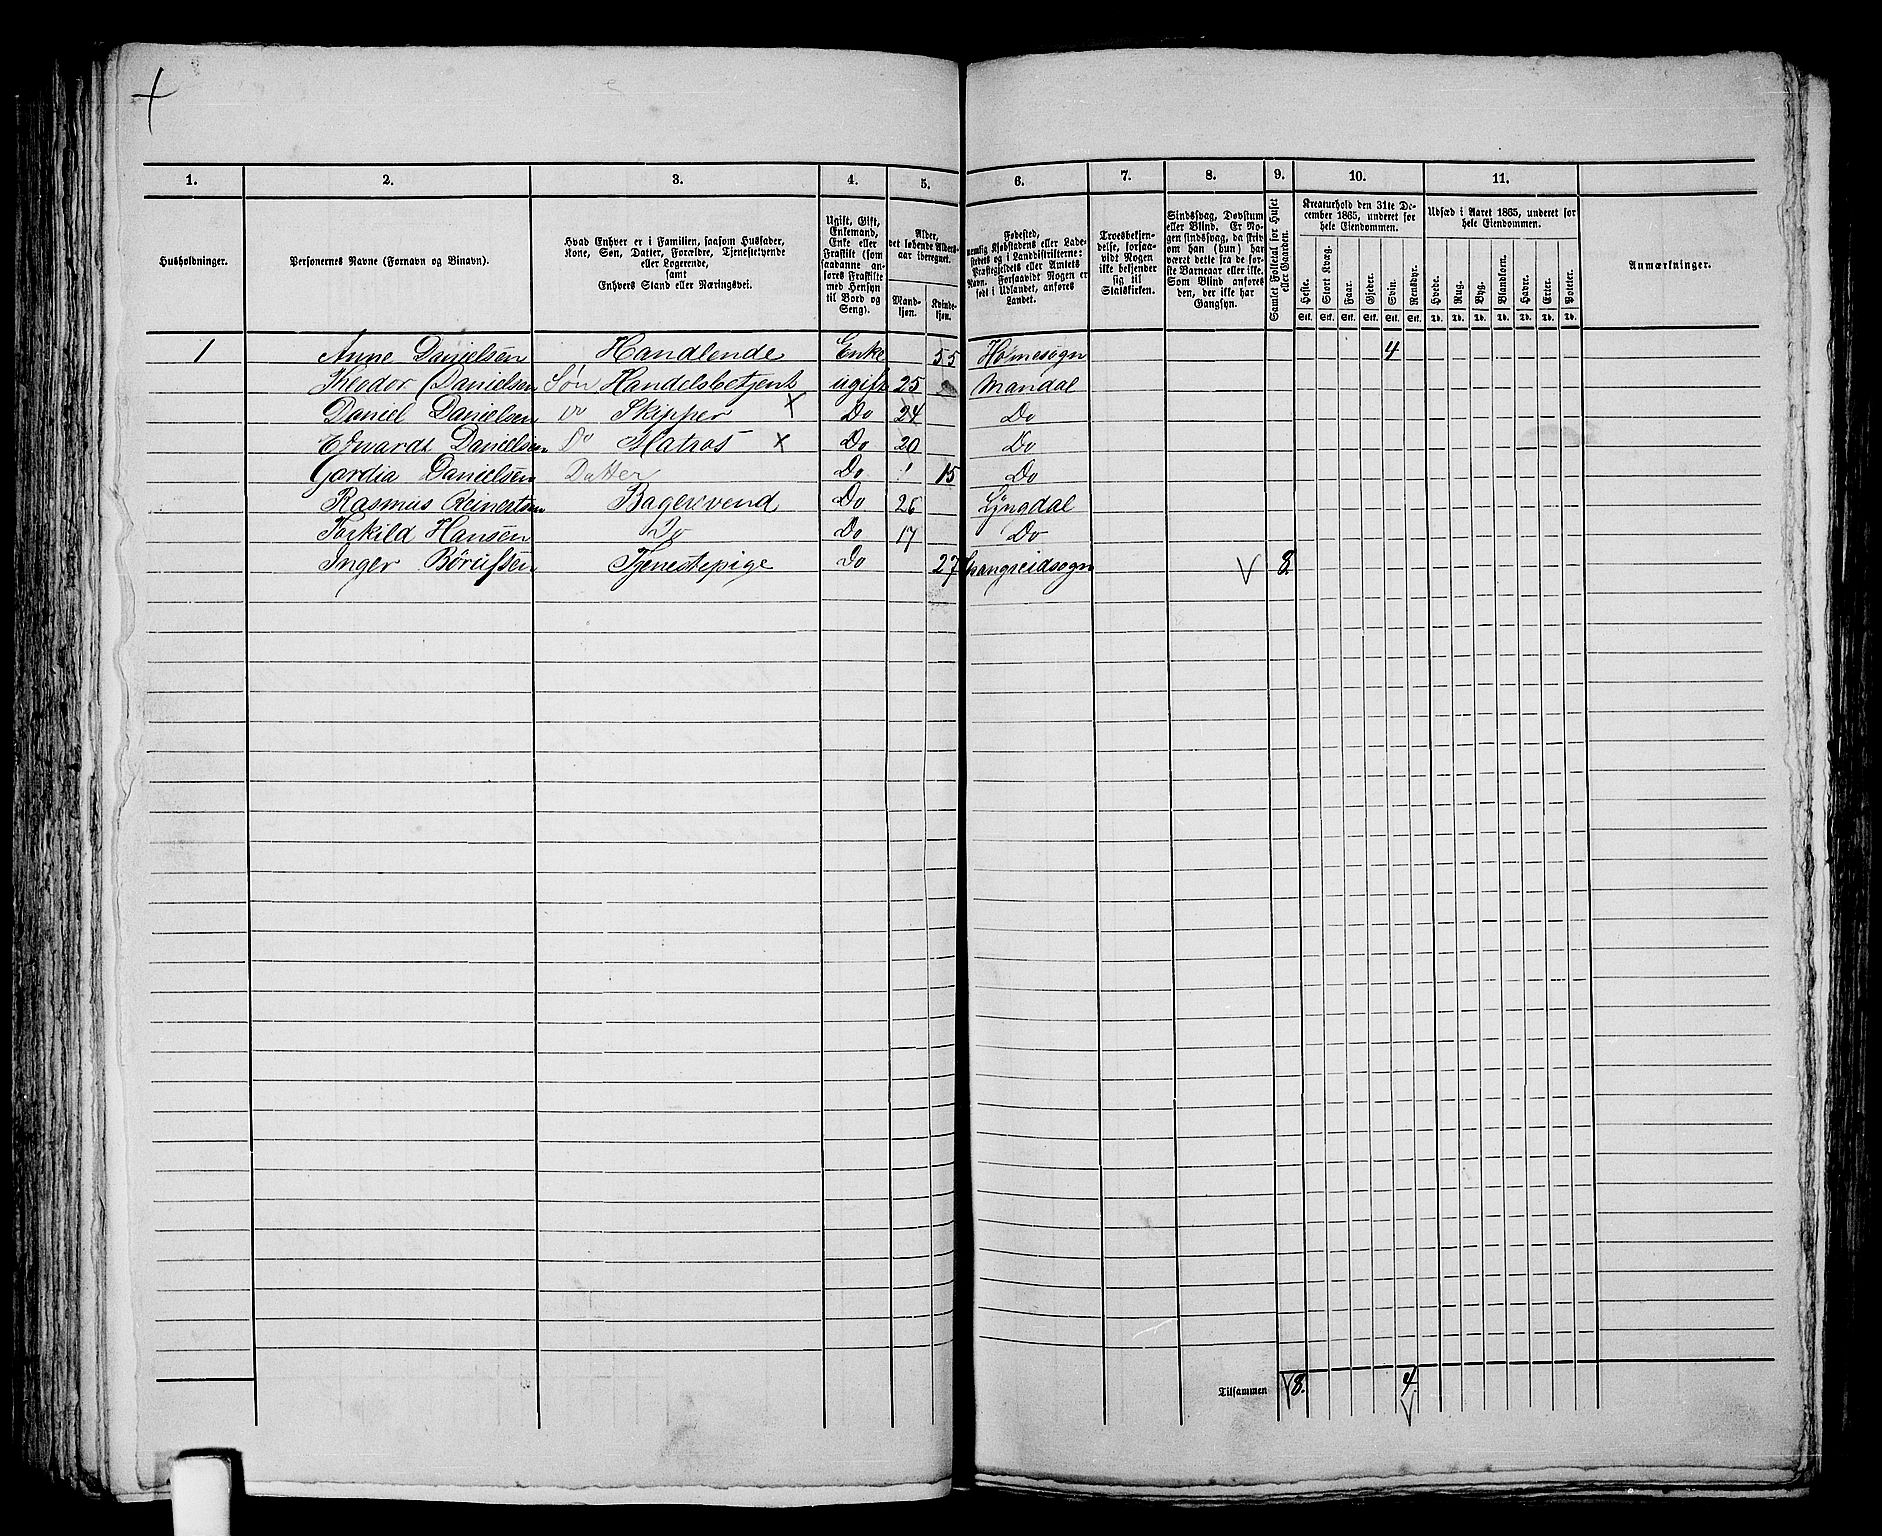 1. 2. 3. 4. 5. 6. 7. 8. 9. 10. 11.
Husholdninger.
Personernes Navne (Fornavn og Binavn).
Hvad Enhver er i Familien, saasom Husfader,
Kone, Søn, Datter, Forældre, Tjenestetyende
eller Logerende,
samt
Enhvers Stand eller Næringsvei.
Ugift, Gift,
Enkemand,
Enke eller
Fraskilt (som
saadanne an-
føres Fraskilte
med Hensyn
til Bord og
Seng).
Alder,
det løbende Alders-
aar iberegnet.
Mand-
kjøn.
Kvinde-
kjøn.
Fødested,
nemlig Kjøbstadens eller Lade-
stedets og i Landdistrikterne:
Præstegjeldets eller Amtets
Navn. Forsaavidt Nogen er
født i Udlandet, anføres
Landet.
Troesbekjen-
delse, forsaa-
vidt Nogen
ikke bekjender
sig til
Statskirken.
Sindssvag, Døvstum
eller Blind. Er No-
gen sindssvag, da skriv
om han (hun) har
været dette fra de før-
ste Barneaar eller ikke.
Som Blind anføres
den, der ikke har
Gangsyn.
Samlet Folketal for Huset
eller Gaarden.
Kreaturhold den 31te De-
cember 1865, underet for
hele Eiendommen.
Heste. Stort Kvæg. Faar. Gjeder. Svin. Rensdyr.
Stk. Stk. Stk. Stk. Stk. Stk.
Udsæd i Aaret 1865, underet for
hele Eiendommen.
Hvede. Rug. Byg. Blandkorn. Havre. Erter. Poteter.
Td. Td. Td. Td. Td. Td. Td.
Anmærkninger.
1 Anne Danielsen Handlende Enke 55 Holmesogn 4
Theodor Danielsen Søn Handelsbetjent ugift 25 Mandal
Daniel Danielsen Do Skipper X Do 24 Do
Edvardt Danielsen Do Matros X Do 20 Do
Gardia Danielsen Datter Do 15 Do
Rasmus Reinertsen Bagersvend Do 26 Lyngdal
Torkild Hansen Do Do 17 Do
Inger Børufsen Tjenestepige Do 27 Spangreidsogn V 8
Tilsammen 8. 4